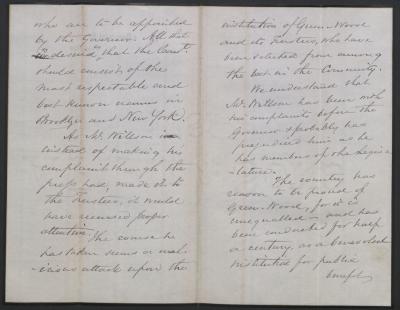 who are to be appointed
by the Governor. All that
is desired, is that the Comt.
should consist of the
most respectable and
best known names in
Brooklyn and New York.
As Mr. Willson
instead of making his
complaint through the
press had, made it to
the Trustees, it would
have received proper
attention. The course he
has taken seems a mal-
-icious attack upon the
institution of Green-Wood
and its Trustees, who have
been selected from among
the best in the Community.
We understand that
Mr. Willson has been with
his complaints before the
Governor & probably has
prejudiced him as he
has members of the Legisla-
-lature.
The country has
reason to be proud of
Green-Wood, for it is
unequalled - and has
been conducted for half
a century, as a benevolent
institution for public
benefit